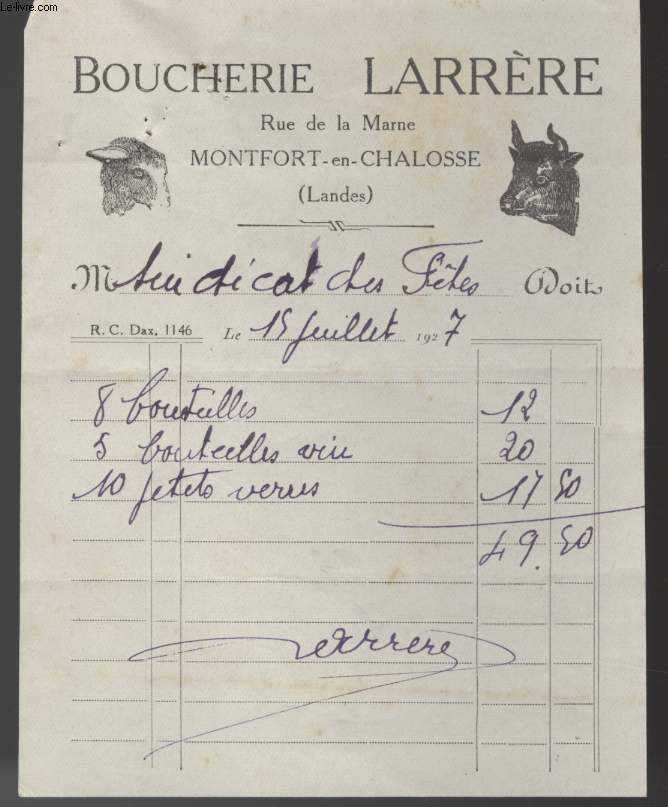 Le-livre.com
BOUCHERIE LARRÈRE
Rue de la Marne
MONTFORT-en-CHALOSSE
(Landes)
M Sindicat des Fêtes Doit
R. C. Dax, 1146 Le 15 Juillet 1927
8 bouteilles 12
5 bouteilles vin 20
10 petits verres 17 50
49.50
Larrere